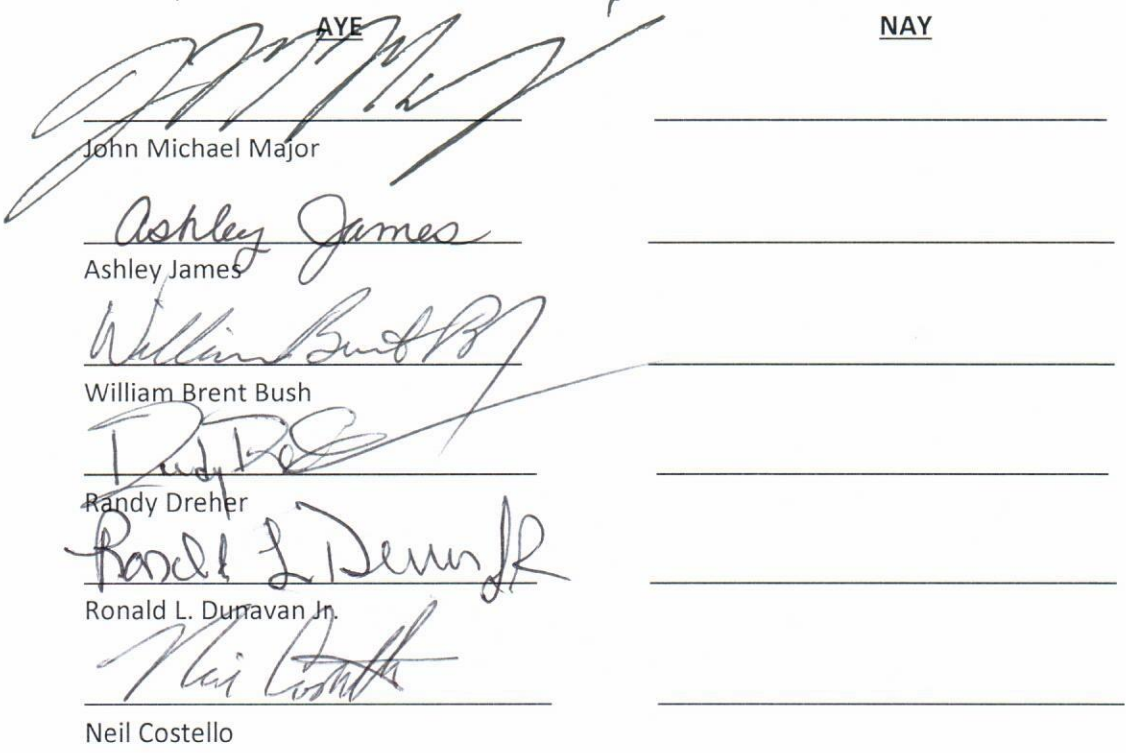 AYE NAY
John Michael Major
Ashley James
Ashley James
William Brent B
William Brent Bush
Randy
Randy Dreher
Ronald L D JR
Ronald L. Dunavan Jr.
Neil Costello
Neil Costello